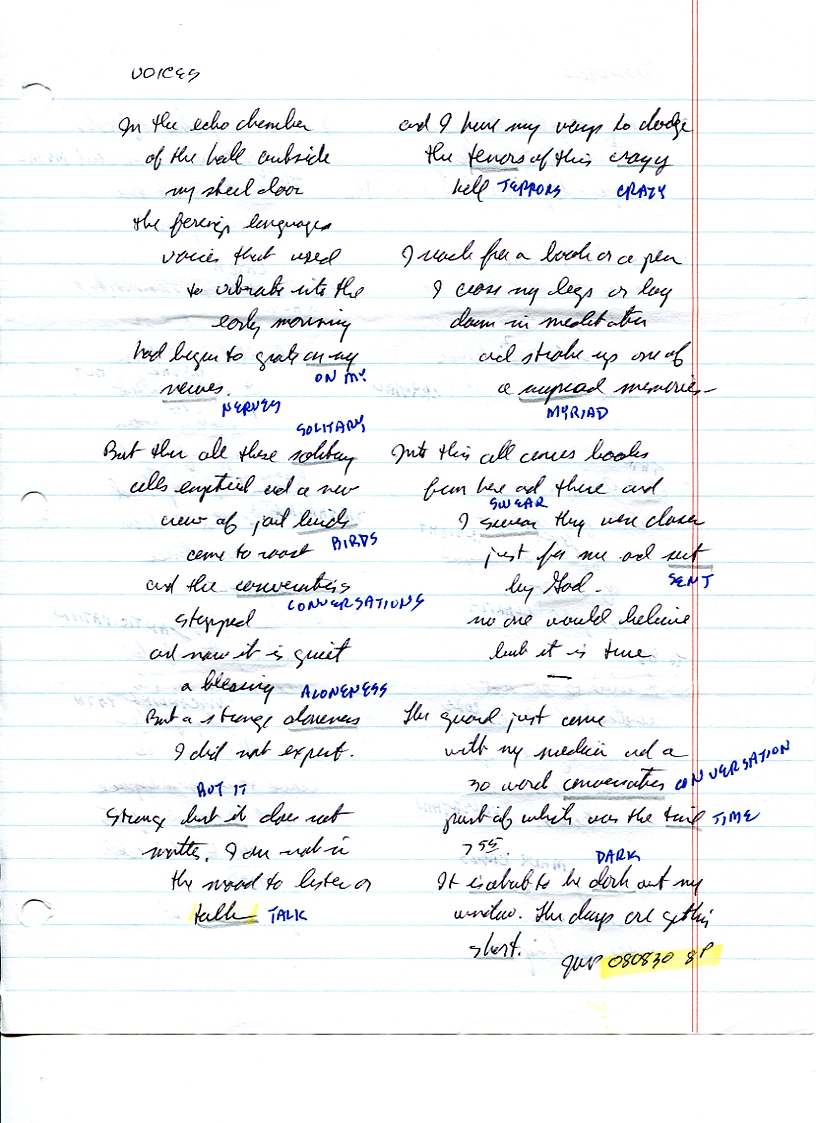 VOICES
In the echo chamber
of the hall outside
my steel door
the foreign languages
voices that used
to vibrate into the
early morning
had begun to grate on my
ON MY
nerves.
NERVES
SOLITARY
But then all these solitary
cells emptied and a new
crew of jail birds
BIRDS
came to roost
and the conversations
CONVERSATIONS
stopped
and now it is quiet
a blessing
ALONENESS
But a strange aloneness
I did not expect.
BUT IT
Strange but it does not
matter. I am not in
the mood to listen or
talk TALK
and I have my ways to dodge
the terrors of this crazy
hell TERRORS CRAZY
I reach for a book or a pen
I cross my legs or lay
down in meditation
and strike up one of
a myriad memories
MYRIAD
Into this cell comes books
from here and there and
SWEAR
I swear they were chosen
just for me and sent
SENT
by God.
no one would believe
but it is true
—
The guard just came
with my medicine and a
30 word conversation CONVERSATION
part of which was the time TIME
7 55.
DARK
It is about to be dark out my
window. The days are getting
short.
JWP 080830 8P